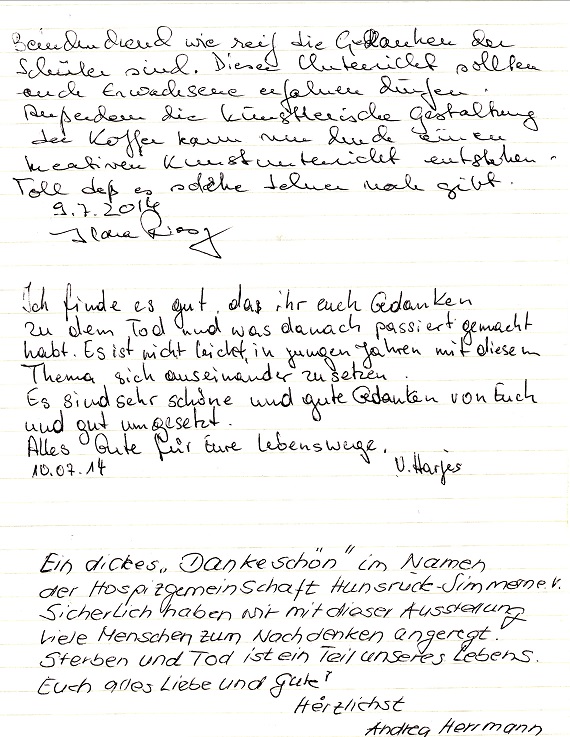 Beeindruckend wie reif die Gedanken der
Schüler sind. Diesen Unterricht sollten
auch Erwachsene erfahren dürfen.
Außerdem die künstlerische Gestaltung
der Koffer kann nur durch einen
kreativen Kunstunterricht entstehen.
Toll daß es solche Lehrer noch gibt.
9.7.2014
Ich finde es gut, das ihr euch Gedanken
zu dem Tod und was danach passiert gemacht
habt. Es ist nicht leicht, in jungen Jahren mit diesem
Thema sich auseinander zu setzen.
Es sind sehr schöne und gute Gedanken von Euch
und gut umgesetzt.
Alles Gute für Eure Lebenswege.
10.07.14 U. Harjes
Ein dickes „Dankeschön" im Namen
der Hospizgemeinschaft Hunsrück-Simmern e.V.
Sicherlich haben wir mit dieser Ausstellung
viele Menschen zum Nachdenken angeregt.
Sterben und Tod ist ein Teil unseres Lebens.
Euch alles Liebe und Gute!
Herzlichst
Andrea Herrmann